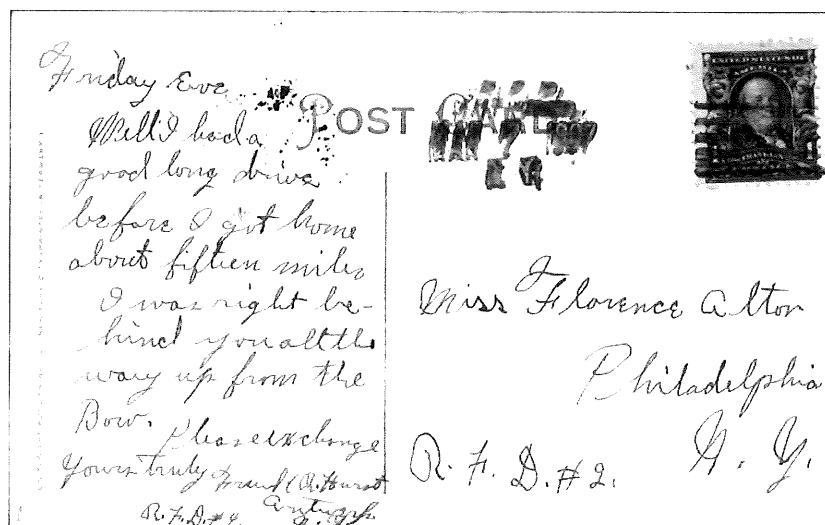 Friday Eve.
Well I had a
good long drive
before I got home
about fifteen miles
I was right be-
hind you all the
way up from the
Bow.
Please exchange
Yours truly Hurst
Antwerp
R.F.D.#4. N.Y.
POST CARD
UNITED STATES OF
AMERICA
FRANKLIN
Miss Florence Alton
Philadelphia
R. F. D. #2. N. Y.